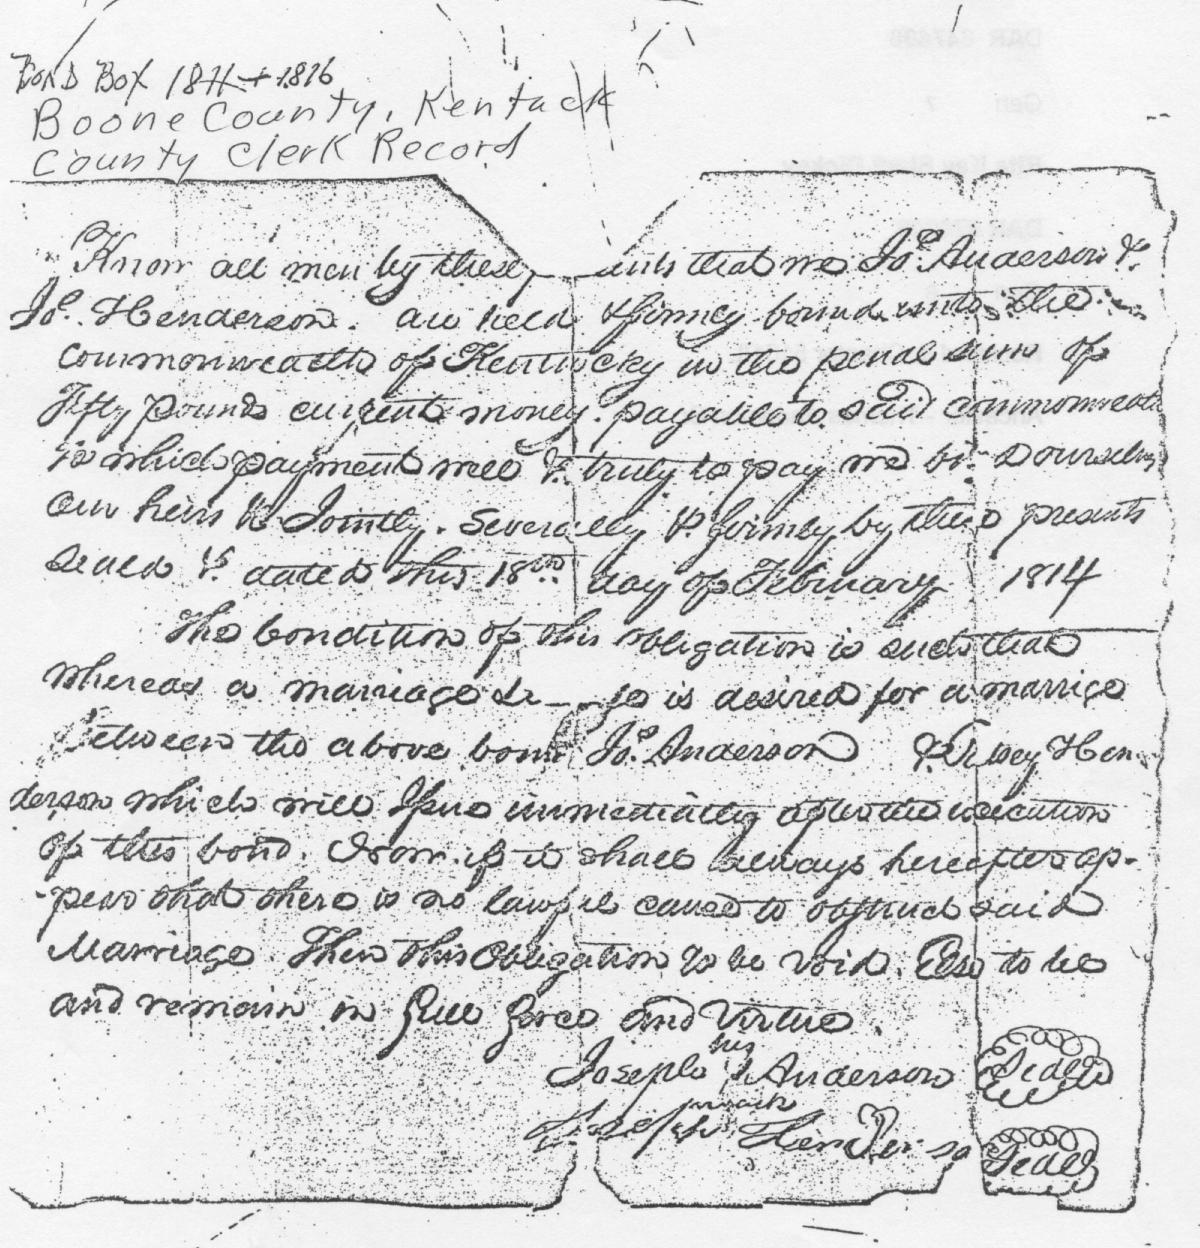 Bond Box 1811-1816
Boone County, Kentuck
County Clerk Record
Know all men by these ents that we Jos. Anderson &
Jos. Henderson. are held & firmly bound unto the
commonwealth of Kentucky in the penal sum of
Fifty pounds current money. payable to said commonwealth
to which payment well & truly to pay we bind ourselves
our heirs &c Jointly. Severally & firmly by these presents
Sealed & dated this 18th day of February 1814
The Condition of this obligation is such that
whereas a marriage is desired for a marrige
between the above bound Jos. Anderson & Hen-
derson which will Issue immediately after the execution
of this bond. Now if it shall always hereafter ap-
-pear that there is no lawful cause to obstruct said
Marriage. Then this Obligation to be void. Else to be
and remain in full force and Virtue.
his
Joseph x Anderson Seal
mark
Joseph Henderson Seal